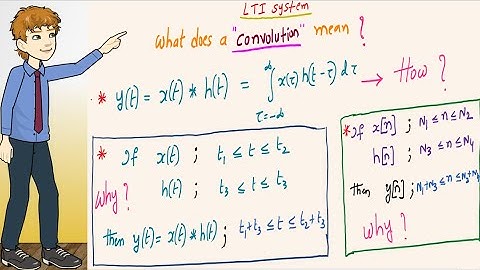 LTI system
What does a "Convolution" mean ?
* y(t) = x(t) * h(t) = ∫_{τ=-∞}^{∞} x(τ) h(t-τ) dτ → How ?
* If x(t) ; t₁ ≤ t ≤ t₂
Why ? h(t) ; t₃ ≤ t ≤ t₃
then y(t) = x(t) * h(t) ; t₁+t₃ ≤ t ≤ t₂+t₃
* If x[n] ; N₁ ≤ n ≤ N₂
h[n] ; N₃ ≤ n ≤ N₄
then y[n] ; N₁+N₃ ≤ n ≤
Why ?